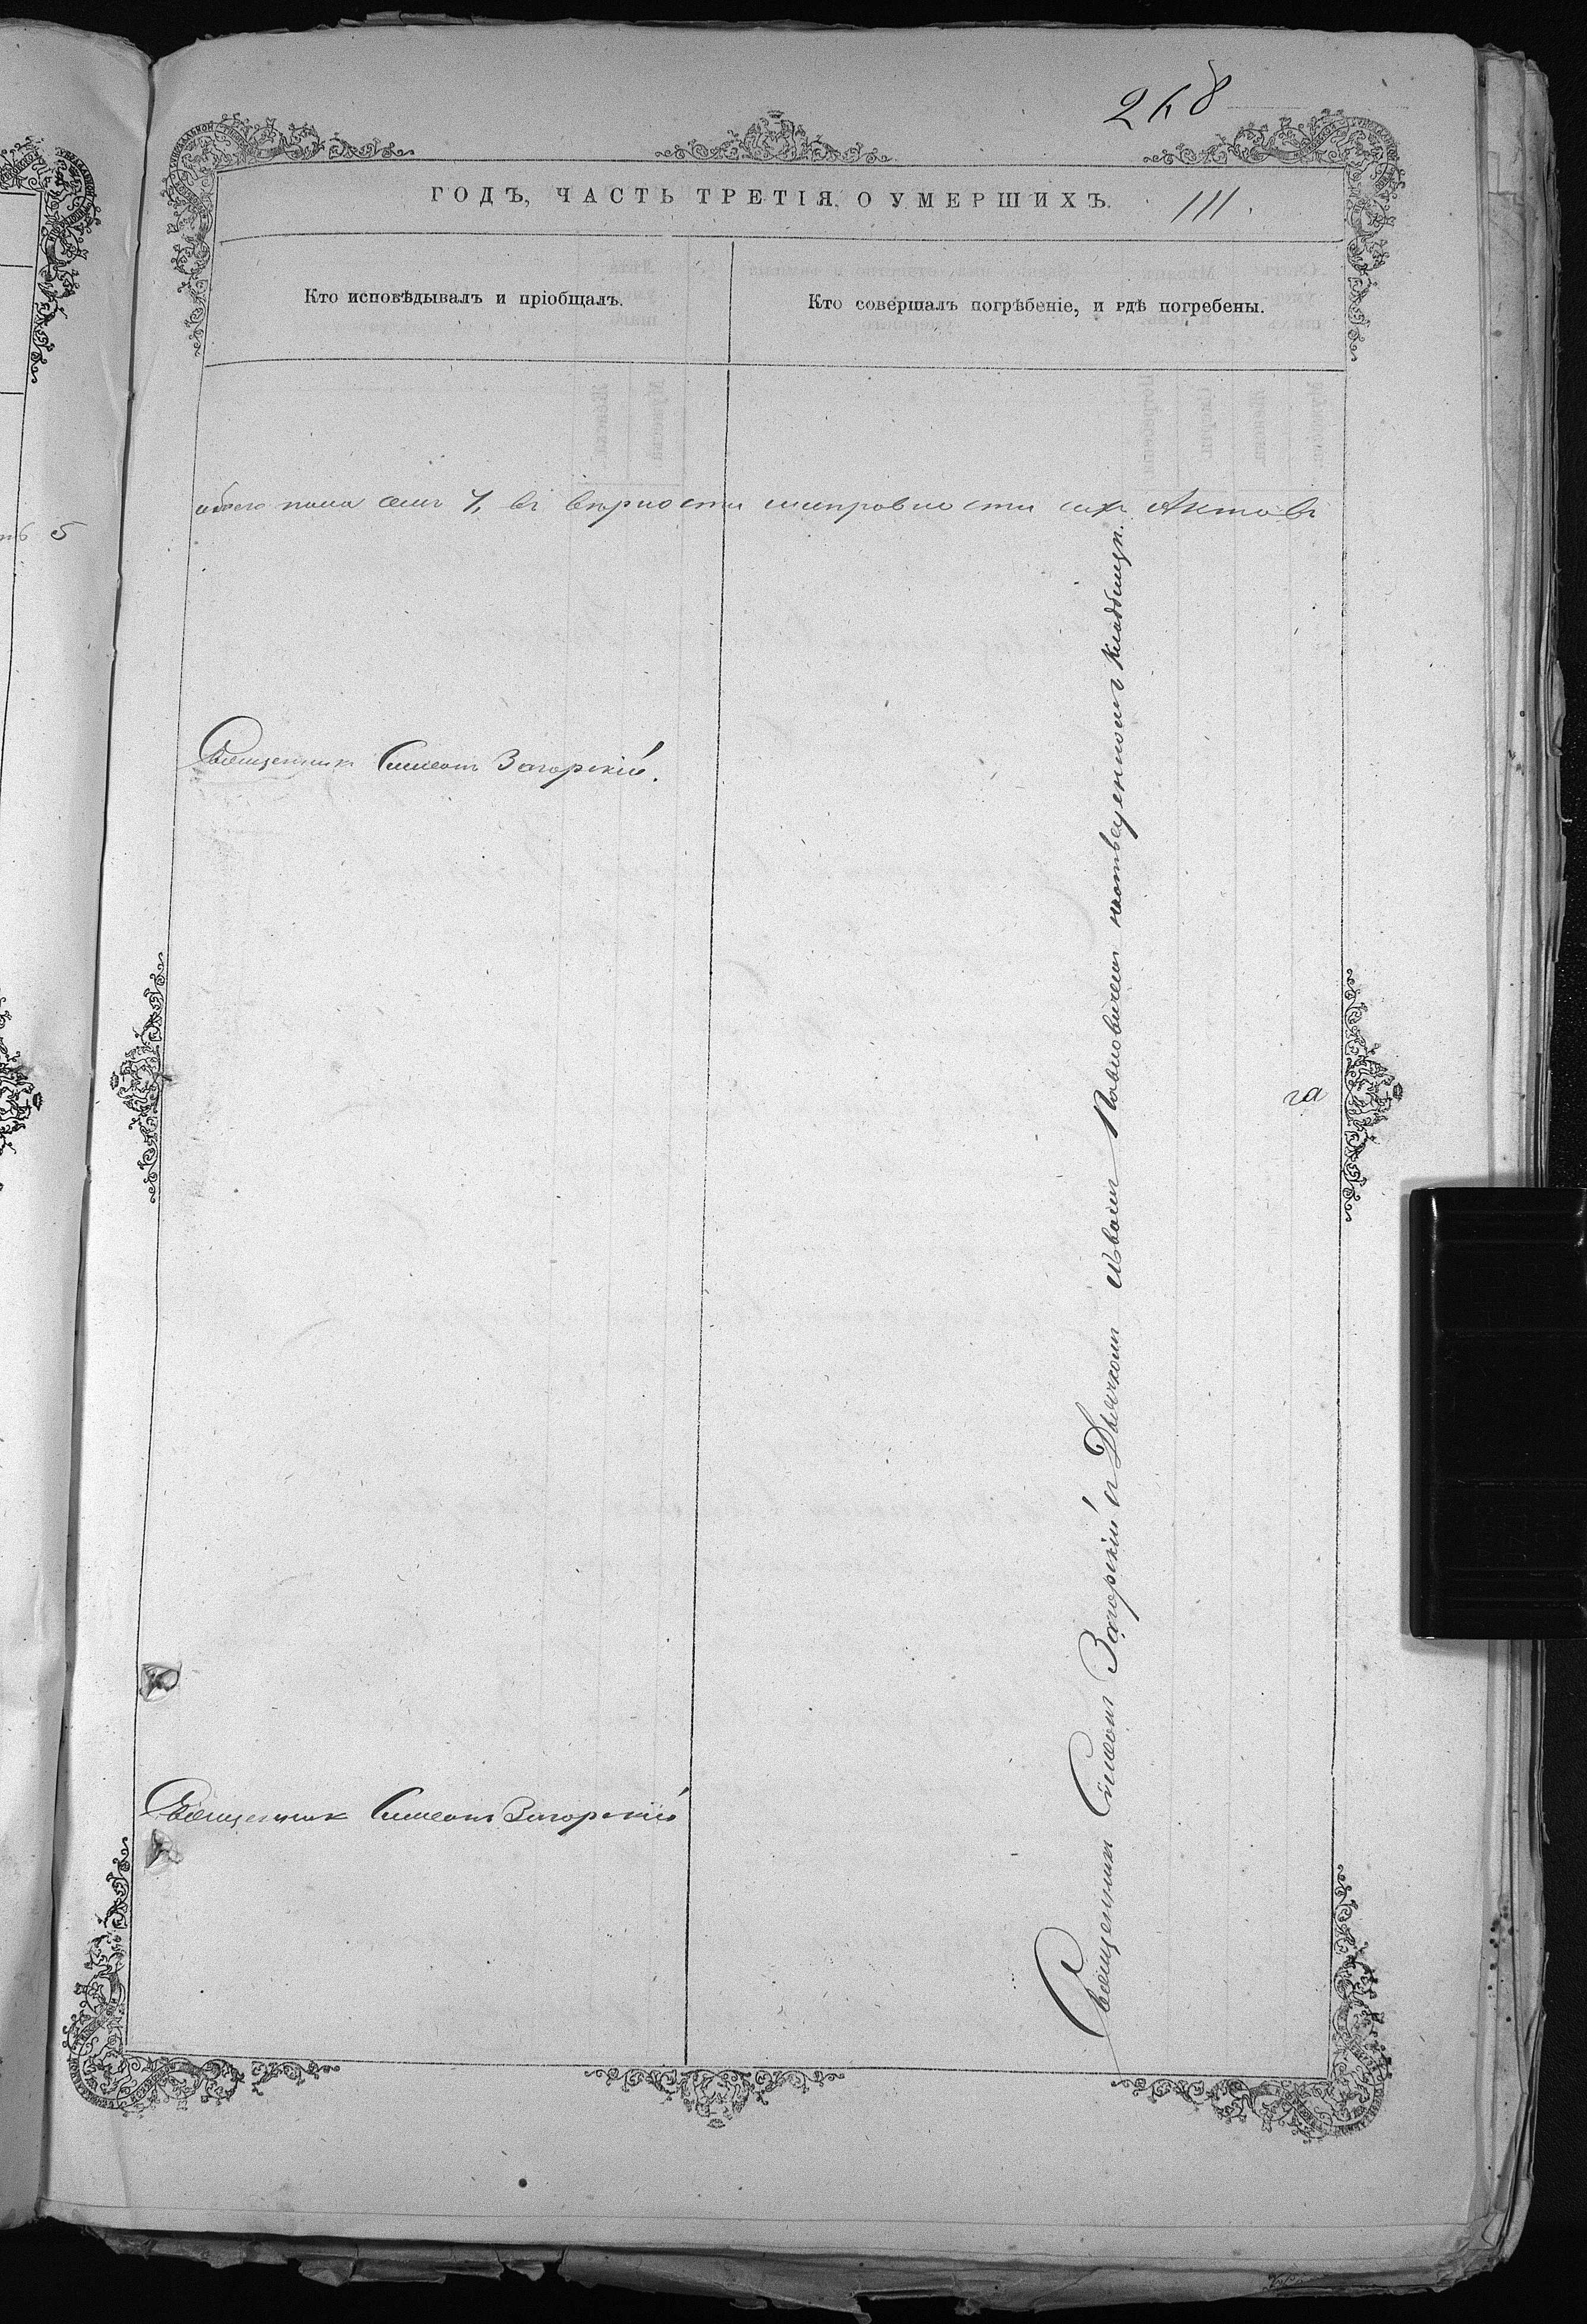 268
ГОДЪ, ЧАСТЬ ТРЕТІЯ, О УМЕРШИХЪ. 111.
Кто исповѣдывалъ и пріобщалъ.
Кто совершалъ погрѣбеніе, и гдѣ погребены.
обоего пола семь 7, въ вѣрности сихъ Актовъ
5
Священникъ Симеонъ Загорскій.
га
Священникъ Симеонъ Загорскій
Священникъ Симеонъ Загорскій съ Дьячкомъ Иваномъ кладбищѣ.